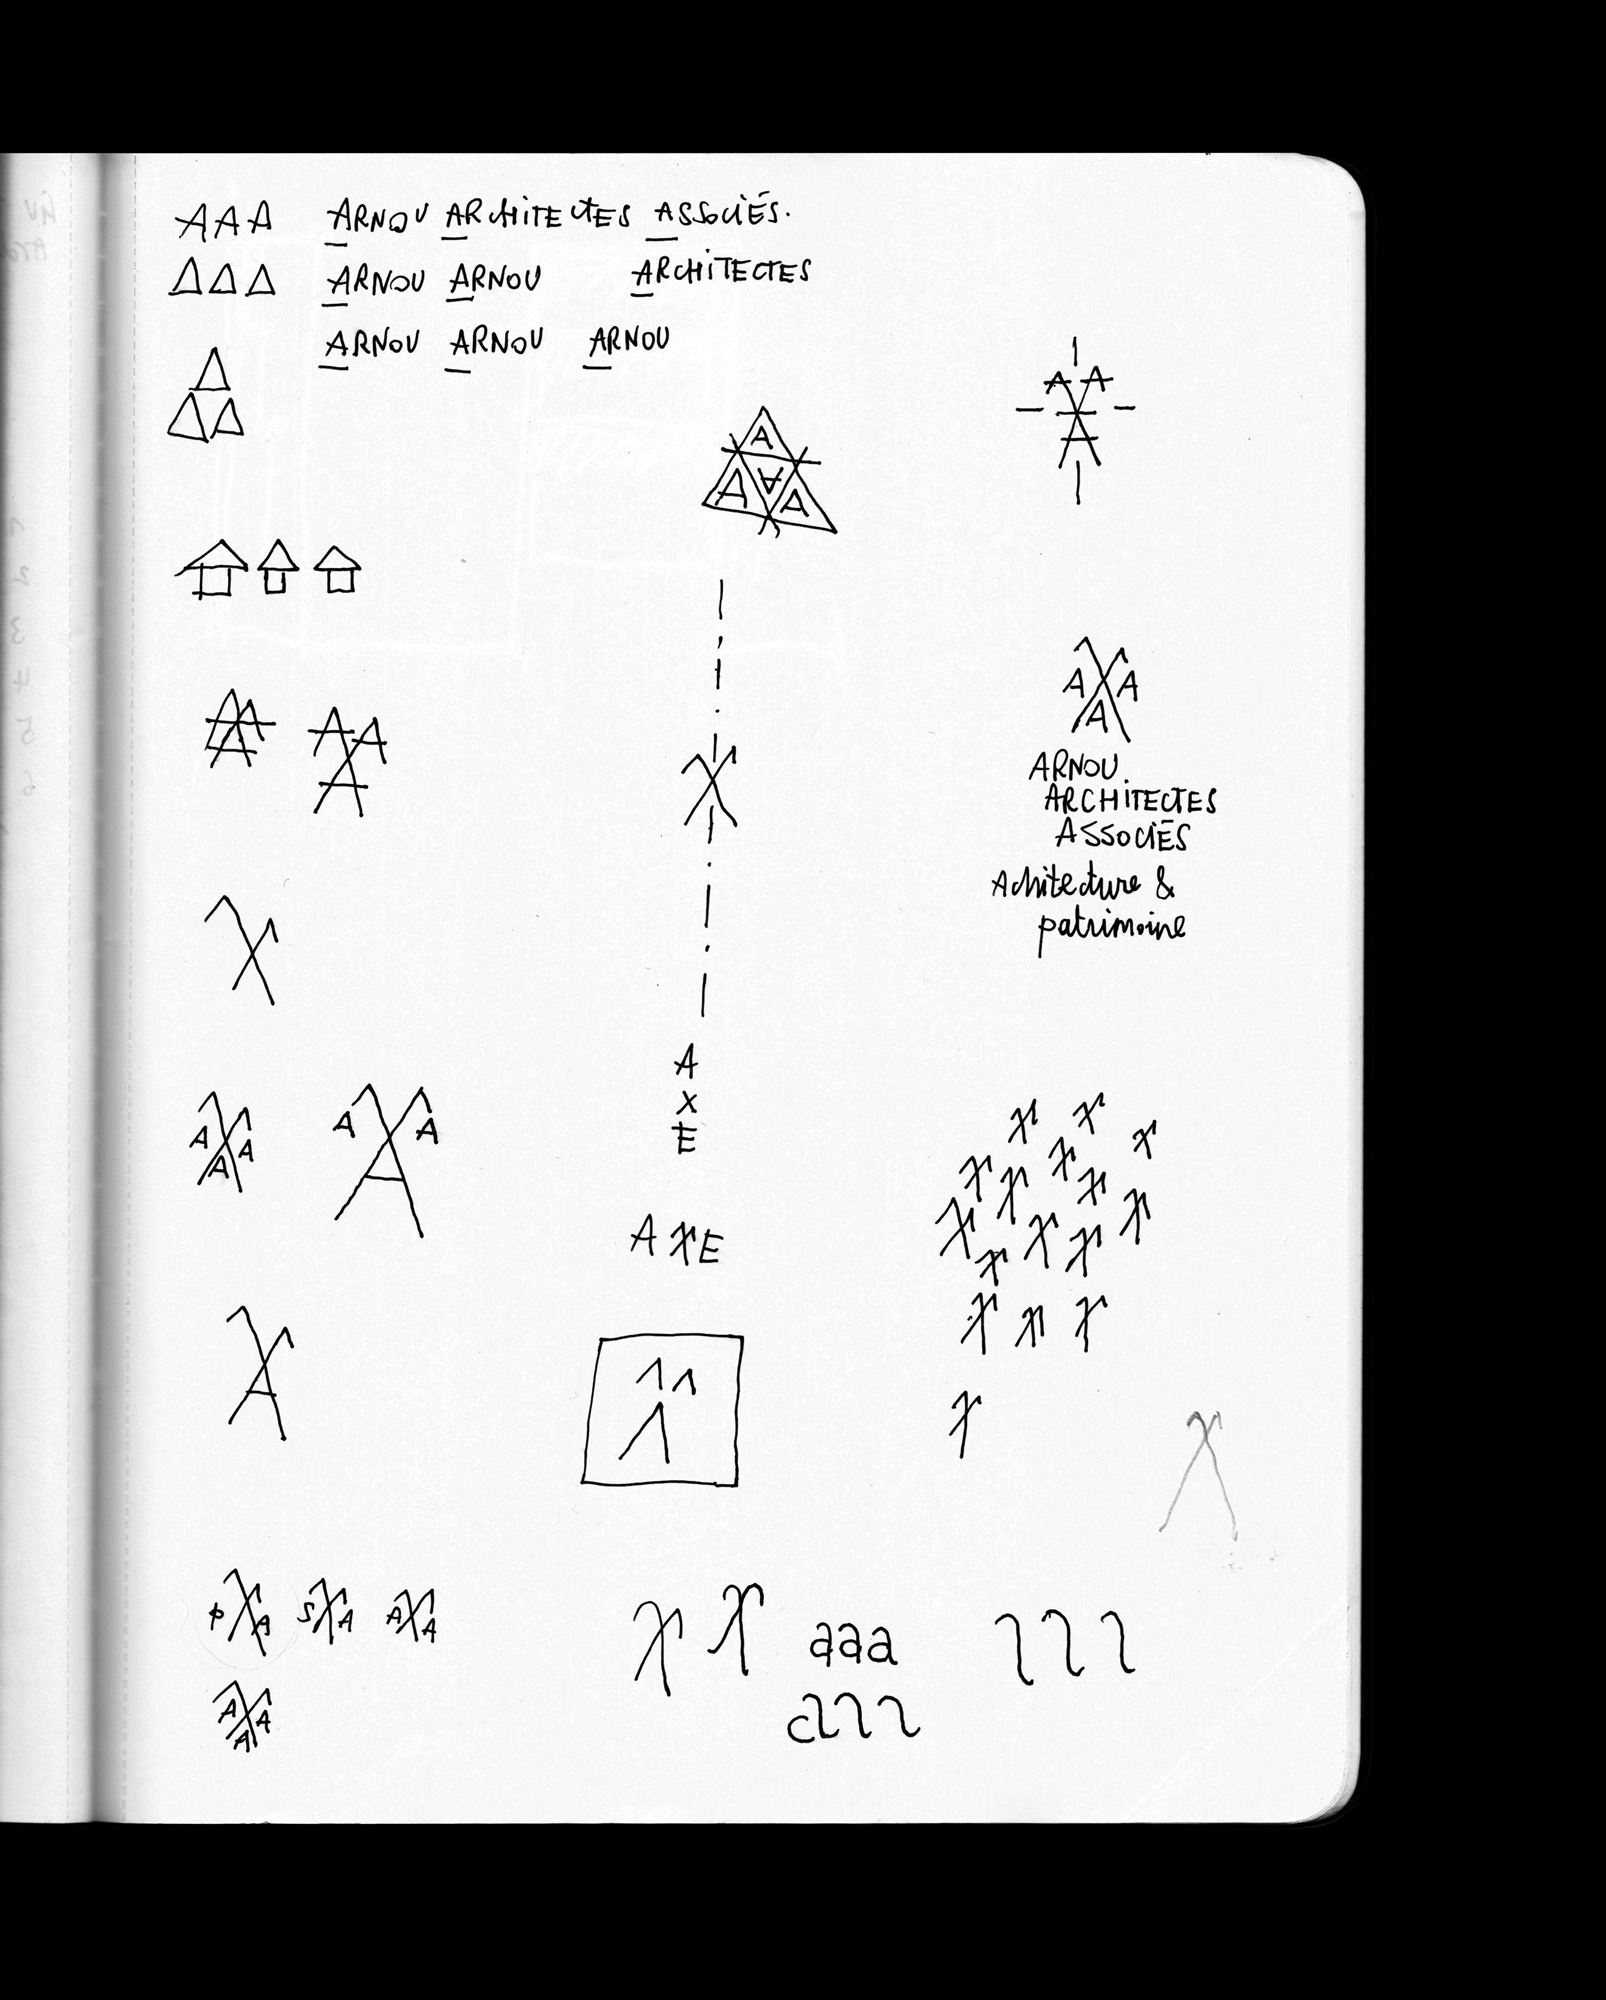 AAA ARNOU ARCHITECTES ASSOCIÉS.
ARNOU ARNOU ARCHITECTES
ARNOU ARNOU ARNOU
A A
A
A
A A A
A A
A
A A A
A
A A
A
ARNOU
ARCHITECTES
ASSOCIÉS
Achitecture &
patrimoine
A A
A
A A
A
X
E
AXE
P A S A A A
aaa
A A
A